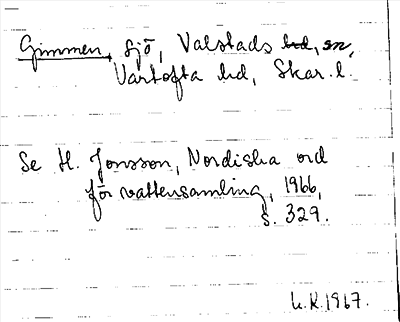 Gimmen, sjö, Valstads sn,
Vartofta hd, Skar. l.
Se H. Jonsson, Nordiska ord
för vattensamling, 1966,
s. 329.
U.K. 1967.